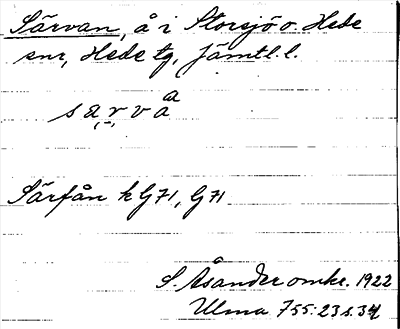 Särvan, å i Storsjö o. Hede
snr, Hede tg, Jämtl. l.
särvaͣ
Särfån k G71, G71
S. Åsander omkr. 1922
Ulma 755:23 s. 34